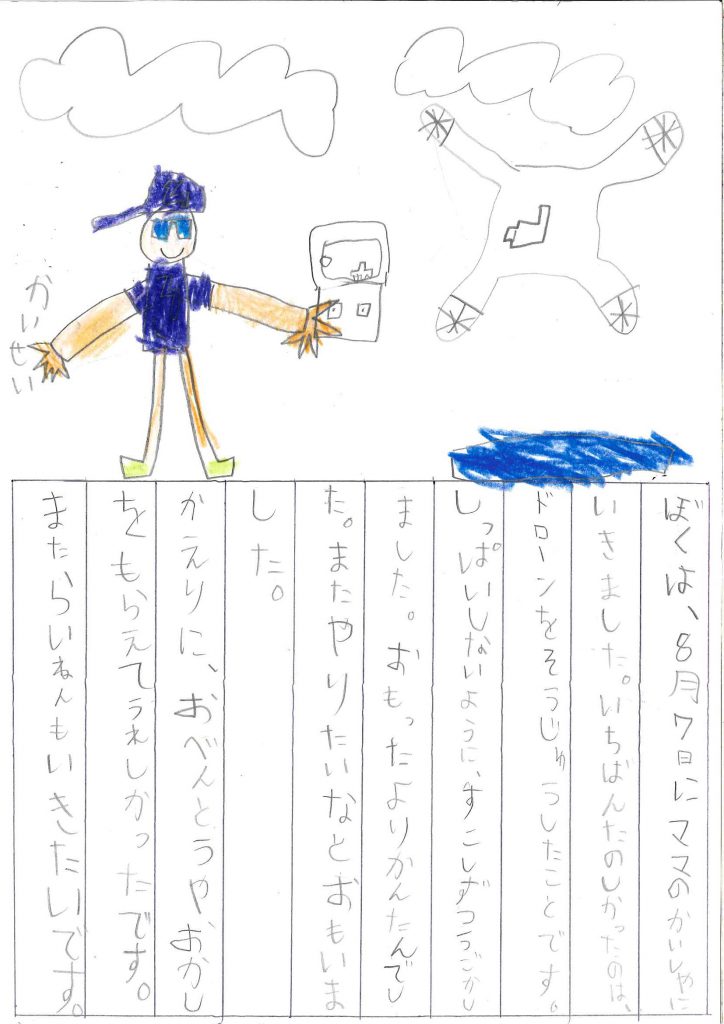 かいせい
ぼくは、8月7日にママのかいしゃに
いきました。いちばんたのしかったのは、
ドローンをそうじゅうしたことです。
しっぱいしないように、すこしずつうごかし
ました。おもったよりかんたんでし
た。またやりたいなとおもいま
した。
かえりに、おべんとうや、おかし
をもらえてうれしかったです。
またらいねんもいきたいです。